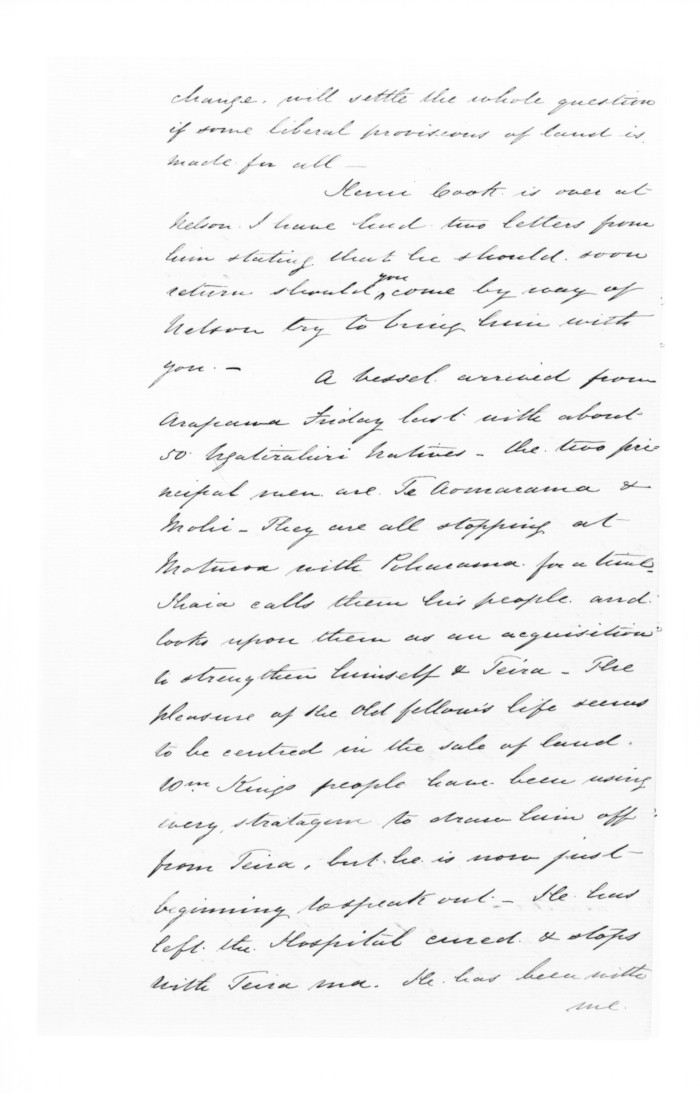 change, will settle the whole question
if some liberal provisions of land is
made for all —
Henri Cook is over at
Nelson. I have had two letters from
him stating that he should soon
return should you come by way of
Nelson try to bring him with
you. —
A vessel arrived from
Arapawa Friday last with about
50 Ngatirahiri Natives — the two pri
ncipal men are Te Aomarama &
Mohi — They are all stopping at
Moturoa with Poharama for a time.
Ihaia calls them his people and
looks upon them as an acquisition
to strengthen himself & Teira — The
pleasure of the old fellow's life seems
to be centred in the sale of land.
Wm Kings people have been using
every stratagem to draw him off
from Teira, but he is now just
beginning to speak out — He has
left the Hospital cured & stops
with Teira ma. He has been with
me.